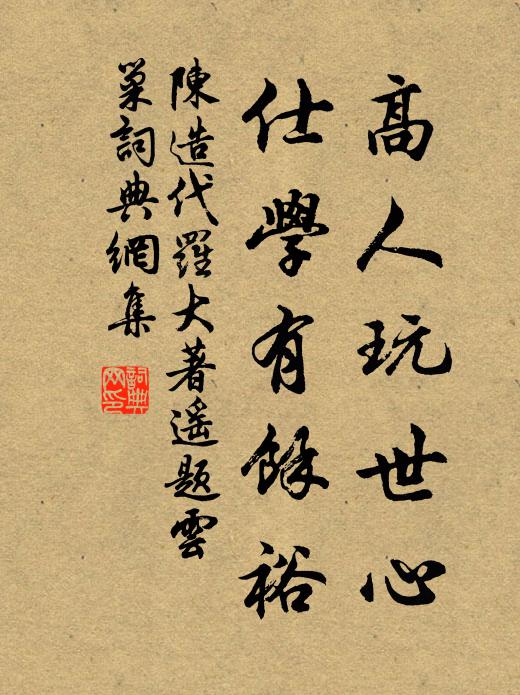 高人玩世心
仕學有餘裕
陳造代羅大著遥题雲
巢詞典網集
詞典
网印